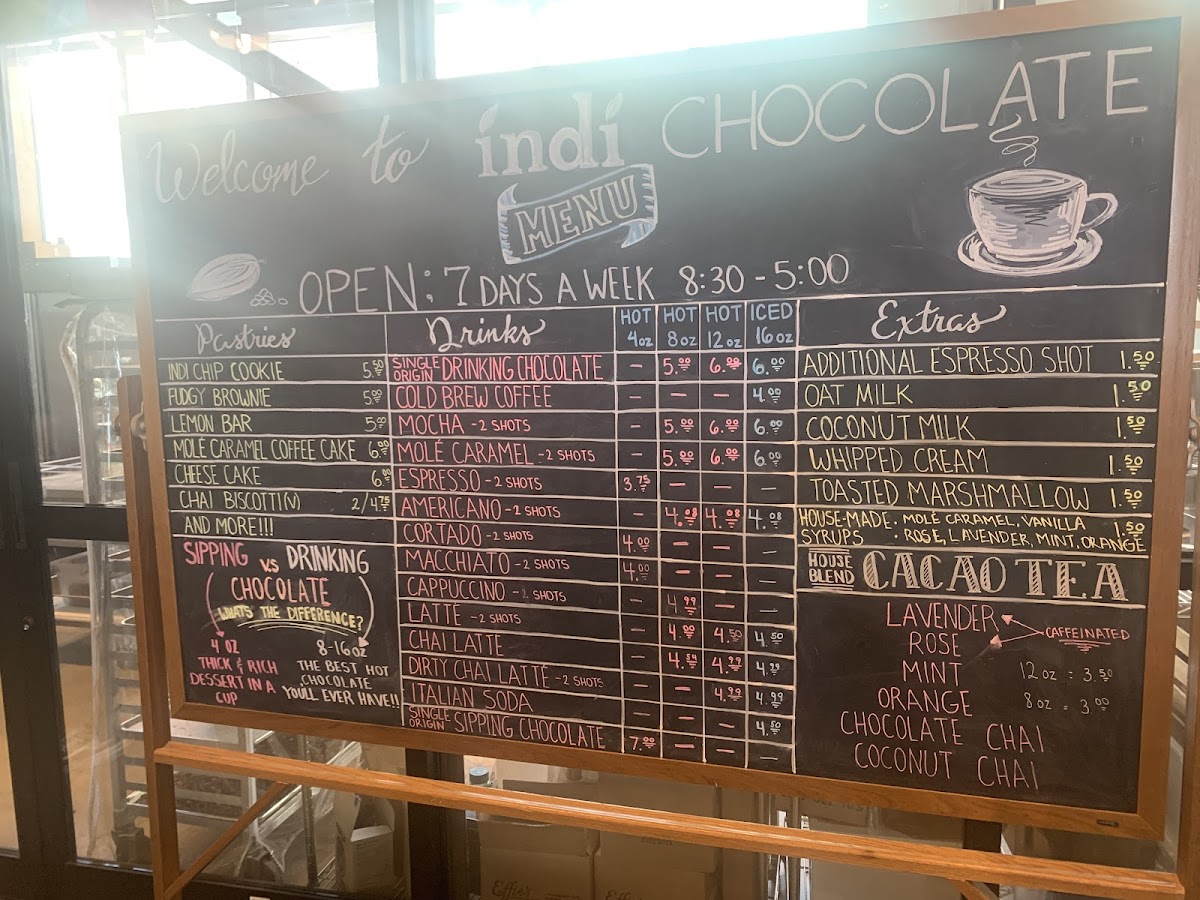 Welcome to indi CHOCOLATE
MENU
OPEN: 7 DAYS A WEEK 8:30 - 5:00
Pastries
INDI CHIP COOKIE 5.50
FUDGY BROWNIE 5.00
LEMON BAR 5.00
MOLÉ CARAMEL COFFEE CAKE 6.00
CHEESE CAKE 6.00
CHAI BISCOTTI (V) 2/4.75
AND MORE!!!
SIPPING V.S DRINKING
CHOCOLATE
WHATS THE DIFFERENCE?
4 OZ
THICK & RICH
DESSERT IN A
CUP
8-16 OZ
THE BEST HOT
CHOCOLATE
YOU'LL EVER HAVE!!
Drinks HOT 4oz HOT 8oz HOT 12oz ICED 16oz
SINGLE ORIGIN DRINKING CHOCOLATE – 5.00 6.00 6.00
COLD BREW COFFEE – – – 4.00
MOCHA - 2 SHOTS – 5.00 6.00 6.00
MOLÉ CARAMEL - 2 SHOTS – 5.00 6.00 6.00
ESPRESSO - 2 SHOTS 3.75 – – –
AMERICANO - 2 SHOTS – 4.08 4.08 4.08
CORTADO - 2 SHOTS 4.00 – – –
MACCHIATO - 2 SHOTS 4.00 – – –
CAPPUCCINO - 2 SHOTS – 4.99 – –
LATTE - 2 SHOTS – 4.00 4.50 4.50
CHAI LATTE – 4.54 4.99
DIRTY CHAI LATTÉ - 2 SHOTS – – 4.99 4.99
ITALIAN SODA – – – 4.50
SINGLE ORIGIN SIPPING CHOCOLATE 7.00 – – –
Extras
ADDITIONAL ESPRESSO SHOT 1.50
OAT MILK 1.50
COCONUT MILK 1.50
WHIPPED CREAM 1.50
TOASTED MARSHMALLOW 1.50
HOUSE-MADE SYRUPS • MOLÉ CARAMEL, VANILLA 1.50
• ROSE, LAVENDER, MINT, ORANGE
HOUSE BLEND CACAO TEA
LAVENDER
ROSE
CAFFEINATED
MINT
12 oz = 3.50
ORANGE
8 oz = 3.00
CHOCOLATE CHAI
COCONUT CHAI
Effie's
Effie's